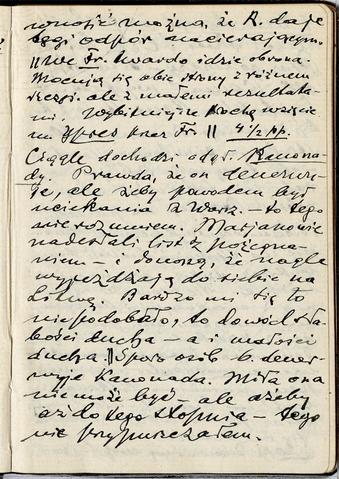 wnosić można, że A. daje
tęgi odpór nacierającym.
|| We Fr. twardo idzie obrona.
Mocują się obie strony z różnem
szczęś. ale z małemi rezultata-
mi. Wybitniejsze trochę wzięcie
m. Ypres przez Fr. || 4 1/2 pp.
Ciągle dochodzi odgł. Kanona-
dy. Prawda, że on denerwu-
je, ale żeby powodem był
uciekania z Warsz. – to tego
nie rozumiem. Marjanowie
nadesłali list z pożegna-
niem – i donoszą, że nagle
wyjeżdżają do siebie na
Litwę. Bardzo mi się to
niepodobało, to dowód sła-
bości ducha – a i małości
ducha. || Sporo osób b. dener-
wuje Kanonada. Miła ona
nie może być – ale ażeby
aż do tego stopnia – tego
nie przypuszczałem.